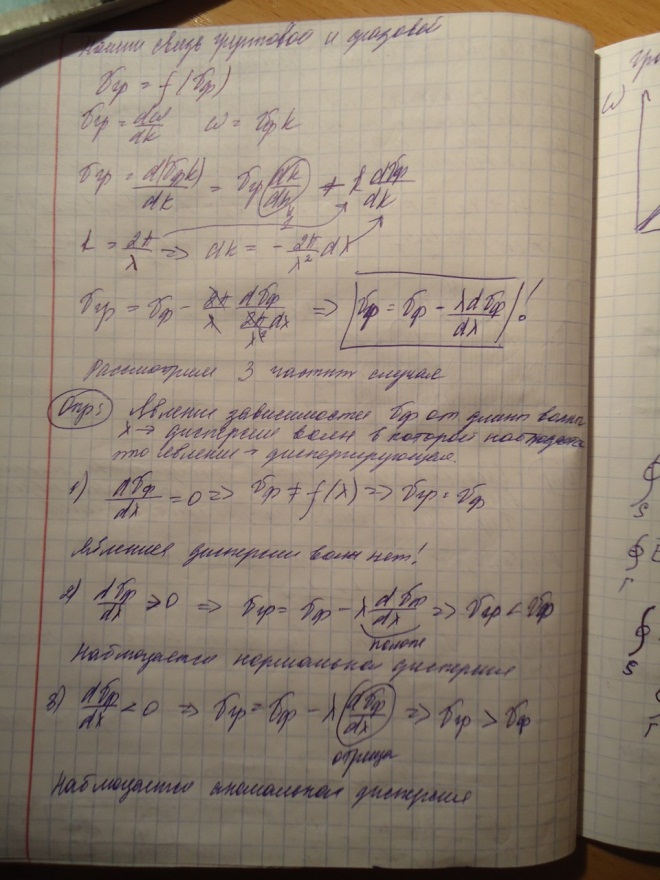 Найти связь групповой и фазовой
υгр = f(υф)
υгр = dω/dk ω = υф k
υгр = d(υф k)/dk = υф dk/dk + k dυф/dk
k = 2π/λ => dk = - 2π/λ² dλ
υгр = υф - 2π/λ dυф/(2π/λ² dλ) => υф = υф - λdυф/dλ !
Рассмотрим 3 частных случая
Опр: Явление зависимости υф от длины волны
λ -> дисперсия волн в которой наблюдается
это явление - диспергирующая.
1) dυф/dλ = 0 => υф ≠ f(λ) => υгр = υф
Явления дисперсии волн нет!
2) dυф/dλ > 0 => υгр = υф - λ dυф/dλ => υгр < υф
полож
Наблюдается нормальная дисперсия
3) dυф/dλ < 0 => υгр = υф - λ dυф/dλ => υгр > υф
отрица
Наблюдается аномальная дисперсия
ω
S
S